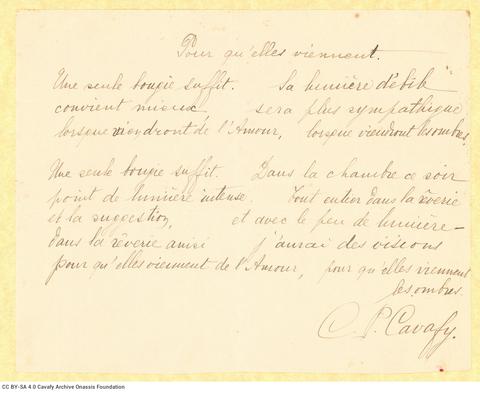 Pour qu'elles viennent.
Une seule bougie suffit. Sa lumière débile
convient mieux sera plus sympathique
lorsque viendront de l'Amour, lorsque viendront les ombres.
Une seule bougie suffit. Dans la chambre ce soir
point de lumière intense. Tout entier dans la rêverie
et la suggestion, et avec le peu de lumière –
dans la rêverie ainsi j'aurai des visions
pour qu'elles viennent de l'Amour, pour qu'elles viennent
les ombres.
C. P. Cavafy.
CC BY-SA 4.0 Cavafy Archive Onassis Foundation